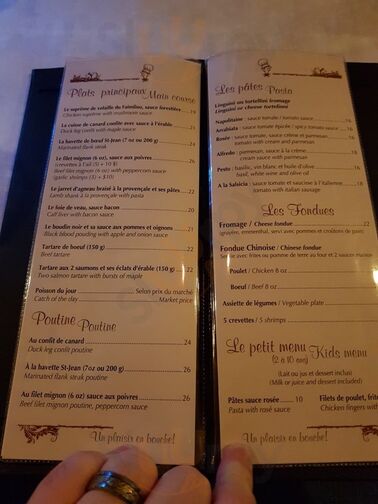 Plats principaux Main course
Le suprême de volaille du Faimfino, sauce forestière
Chicken suprême with mushroom sauce 19
La cuisse de canard confite avec sauce à l'érable
Duck leg confit with maple sauce 21
La bavette de bœuf St-Jean (7 oz ou 200 g)
Marinated flank steak 24
Le filet mignon (6 oz), sauce aux poivres 26
crevettes à l'ail (5) + 10$
Beef filet mignon (6 oz), with peppercorn sauce
garlic shrimps (5) +$10)
Le jarret d'agneau braisé à la provençale et ses pâtes 22
Lamb shank à la provençale with pasta
Le foie de veau, sauce bacon 20
Calf liver with bacon sauce
Le boudin noir et sa sauce aux pommes et oignons 21
Black blood pouding with apple and onion sauce
Tartare de boeuf (150 g) 22
Beef tartare
Tartare aux 2 saumons et ses éclats d'érable (150 g) 22
Two salmon tartare with bursts of maple
Poisson du jour Selon prix du marché
Catch of the day Market price
Poutine Poutine
Au confit de canard 24
Duck leg confit poutine
À la bavette St-Jean (7oz ou 200 g) 26
Marinated flank steak poutine
Au filet mignon (6 oz) sauce aux poivres 26
Beef filet mignon poutine, peppercorn sauce
Un plaisir en bouche!
Les pâtes Pasta
Linguini ou tortellini fromage
Linguini or cheese tortellini
Napolitaine : sauce tomate / tomato sauce 16
Arrabiata : sauce tomate épicée / spicy tomato sauce 16
Rosée : sauce tomate, sauce crème et parmesan 16
tomato with cream and parmesan
Alfredo : parmesan, sauce à la crème 16
cream sauce with parmesan
Pesto : basilic, vin blanc et huile d'olive 16
basil, white wine and olive oil
À la Salsicia : sauce tomate et saucisse à l'italienne 18
tomato with italian sausage
Les Fondues
Fromage / Cheese fondue 22
gruyère, emmenthal, servi avec pommes et croûtons de pain
Fondue Chinoise / Chinese fondue
Servie avec frites ou pomme de terre au four et 2 sauces maison
Poulet / Chicken 8 oz
Boeuf / Beef 8 oz
Assiette de légumes / Vegetable plate
5 crevettes / 5 shrimps
Le petit menu Kids menu
(2 à 10 ans)
(Lait ou jus et dessert inclus)
(Milk or juice and dessert included)
Pâtes sauce rosée 10
Pasta with rosé sauce
Filets de poulet, frites
Chicken fingers with
Un plaisir en bouche!